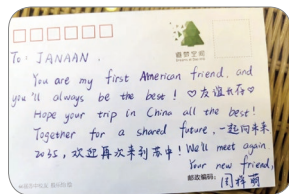 遵梦空间
To: JANAAN.
You are my first American friend, and
you'll always be the best! ♡友谊长存♡
Hope your trip in China all the best!
Together for a shared future, 一起向未来
2035, 欢迎再次来到苏中! We'll meet again.
Your new friend,
邮政编码:
周祥萌